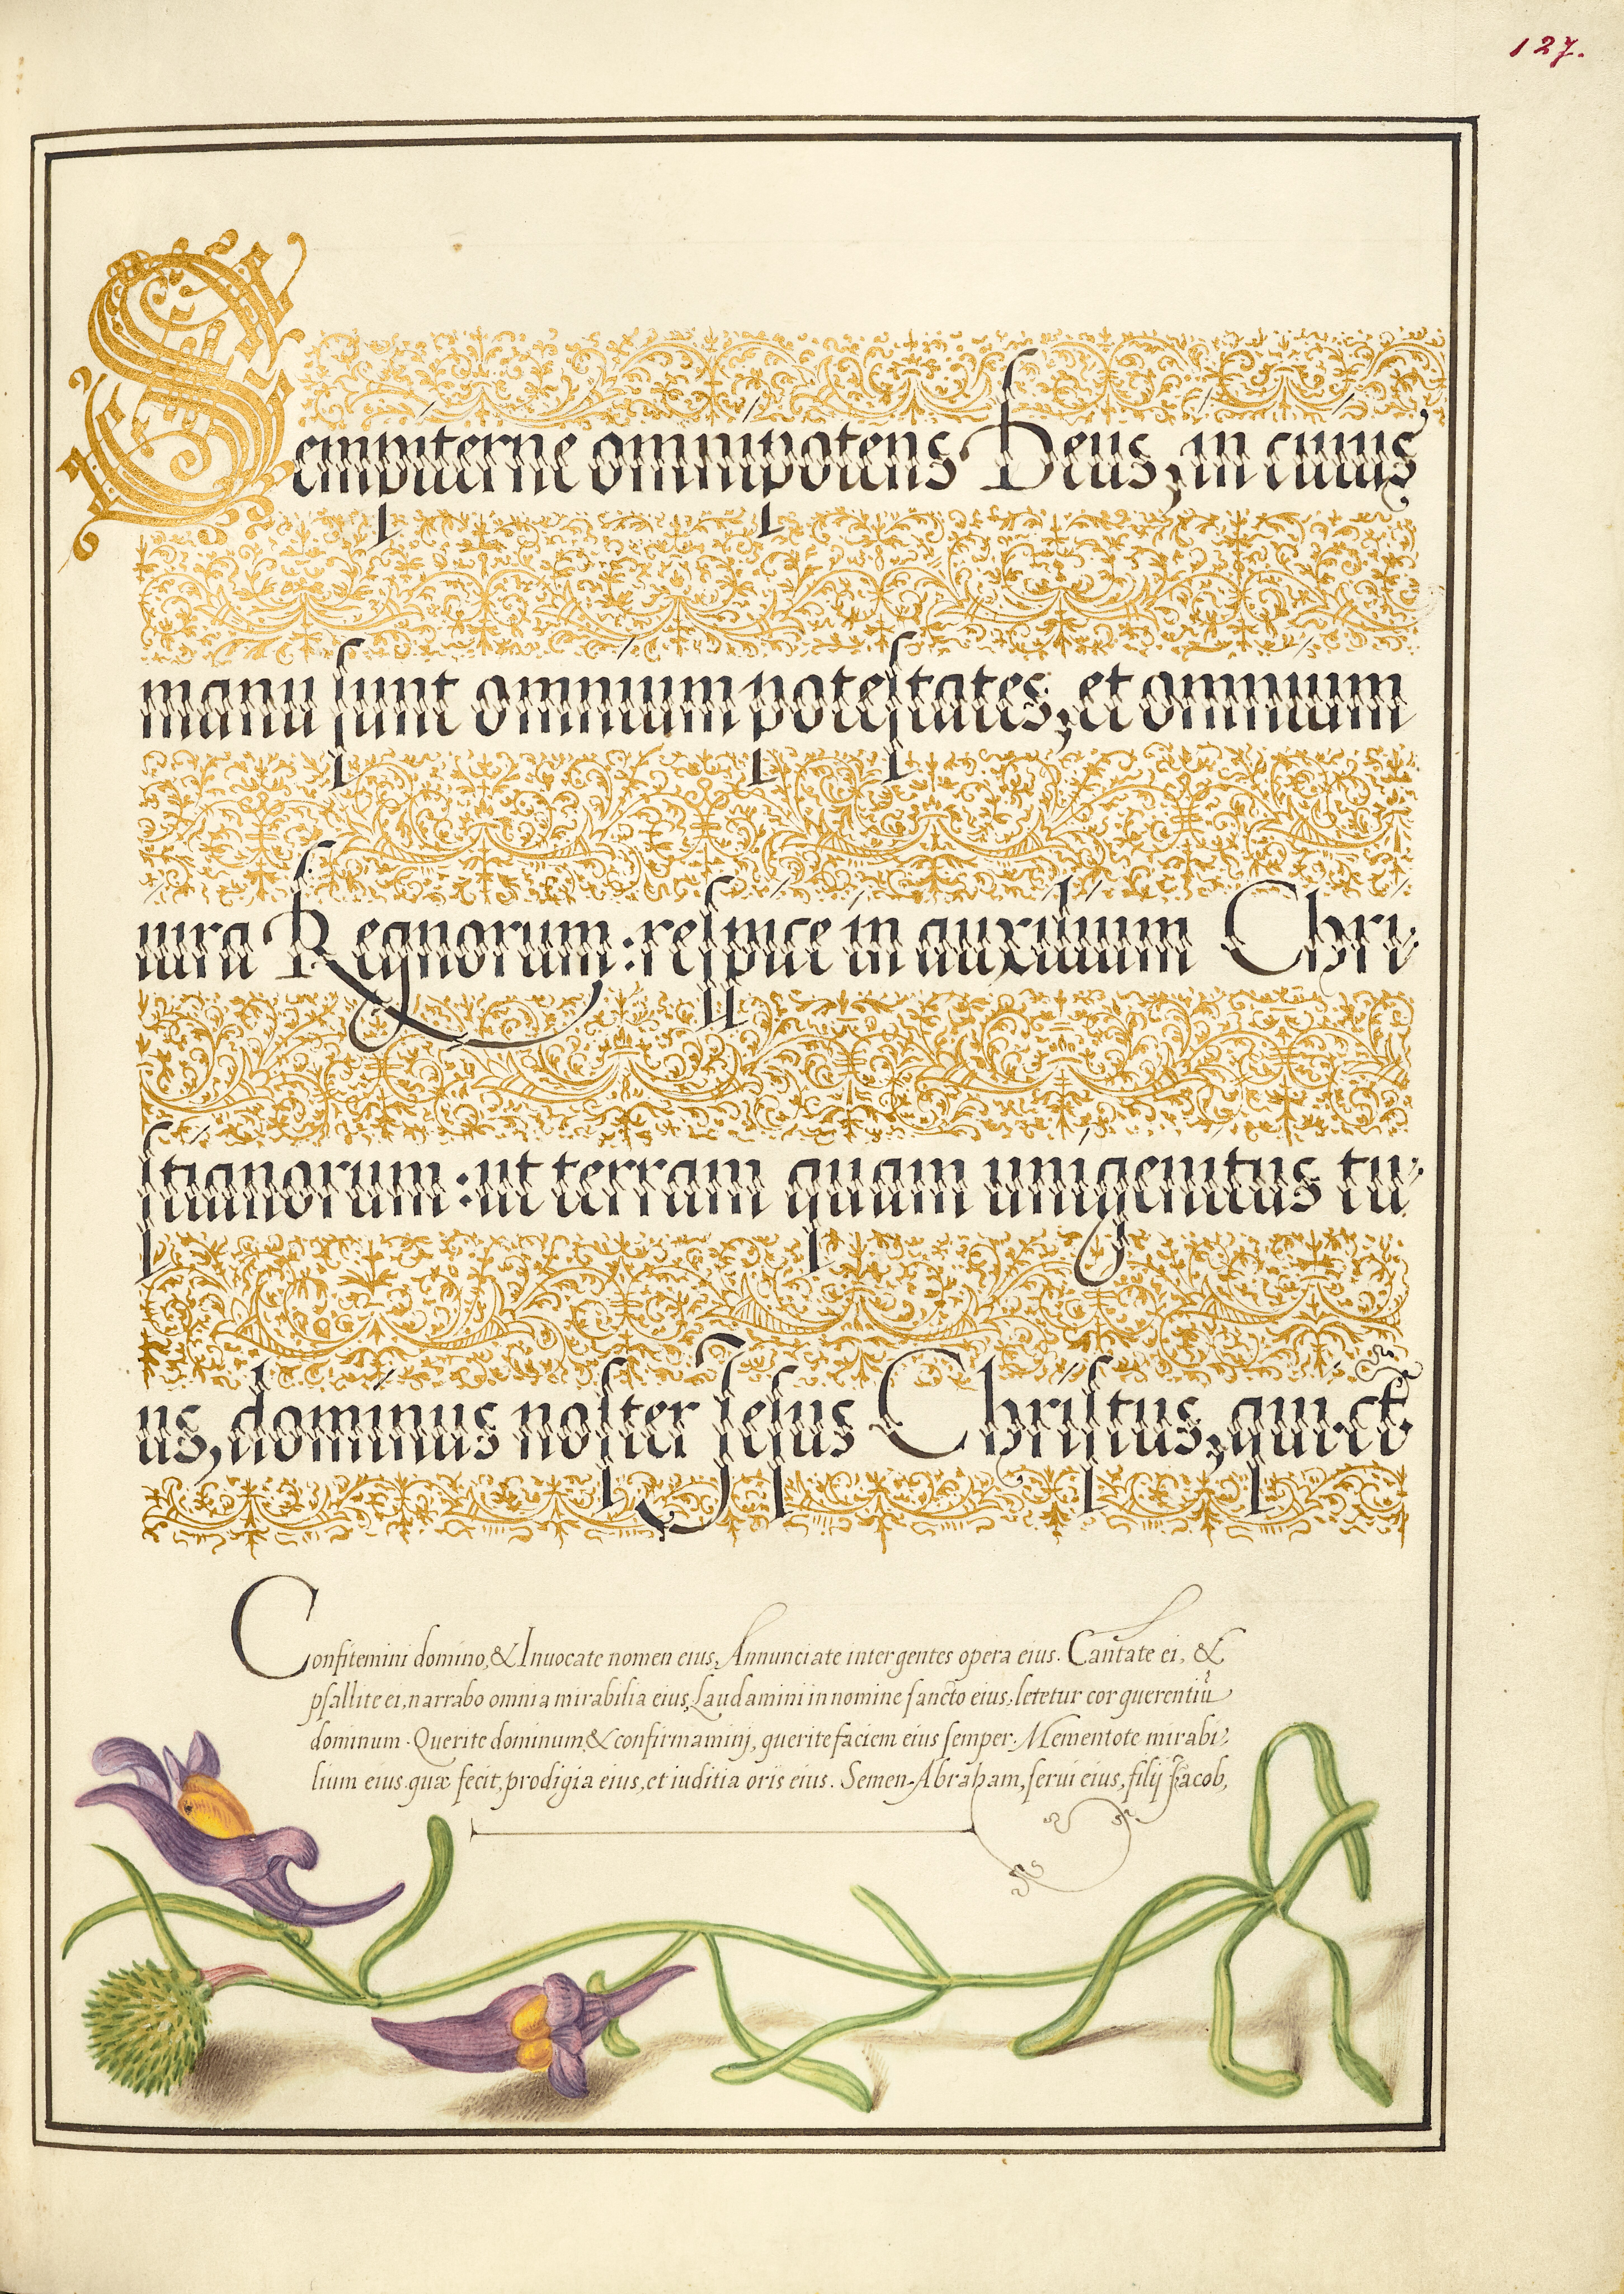 127.
Sempiterne omnipotens Deus, in cuius
manu ſunt omnium poteſtates, et omnium
iura Regnorum: reſpice in auxilium Chri-
ſtianorum: ut terram quam unigenitus tu-
us, dominus noſter Jeſus Chriſtus, qui &
Confitemini domino, & Invocate nomen eius, Annunciate inter gentes opera eius. Cantate ei, &
pſallite ei, narrabo omnia mirabilia eius, Laudamini in nomine ſancto eius: letetur cor querentiū
dominum. Querite dominum & confirmamini, querite faciem eius ſemper. Mementote mirabi-
lium eius quæ fecit, prodigia eius, et iuditia oris eius. Semen Abraham, ſerui eius, filij Jacob,